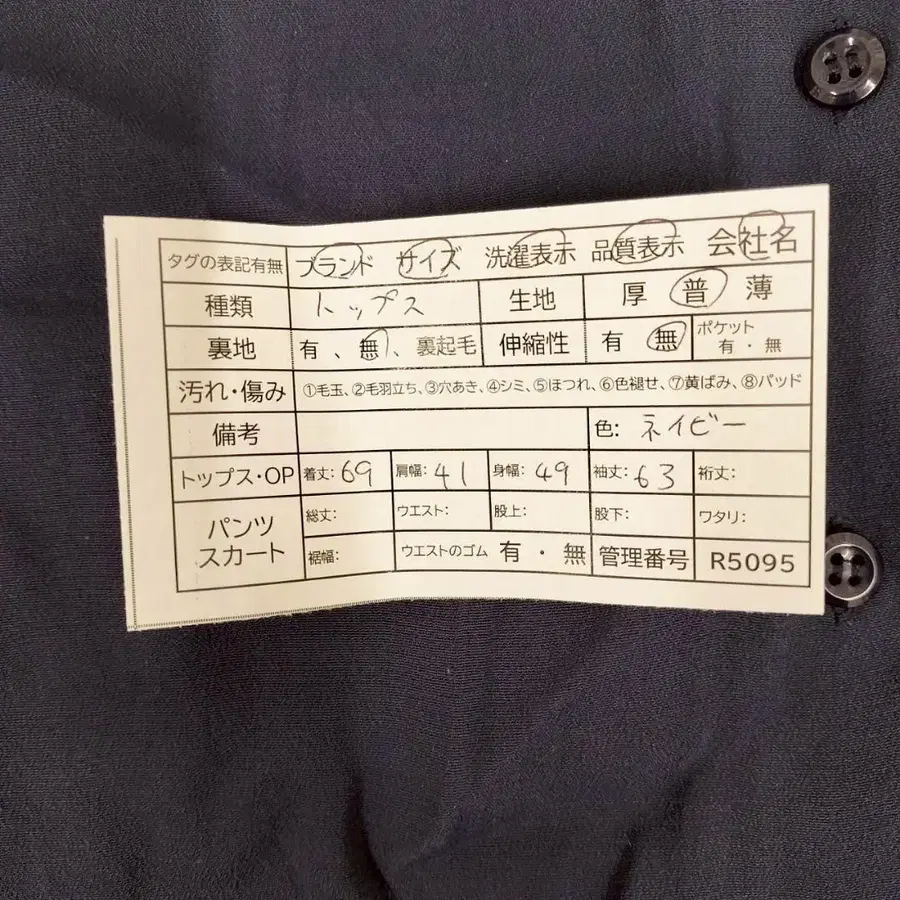 タグの表記有無 ブランド サイズ 洗濯表示 品質表示 会社名
種類 トップス 生地 厚 普 薄
裏地 有、無、裏起毛 伸縮性 有 無 ポケット 有・無
汚れ・傷み ①毛玉、②毛羽立ち、③穴あき、④シミ、⑤ほつれ、⑥色褪せ、⑦黄ばみ、⑧パッド
備考 色: ネイビー
トップス・OP 着丈: 69 肩幅: 41 身幅: 49 袖丈: 63 裄丈:
パンツ スカート 総丈: ウエスト: 股上: 股下: ワタリ:
裾幅: ウエストのゴム 有・無 管理番号 R5095